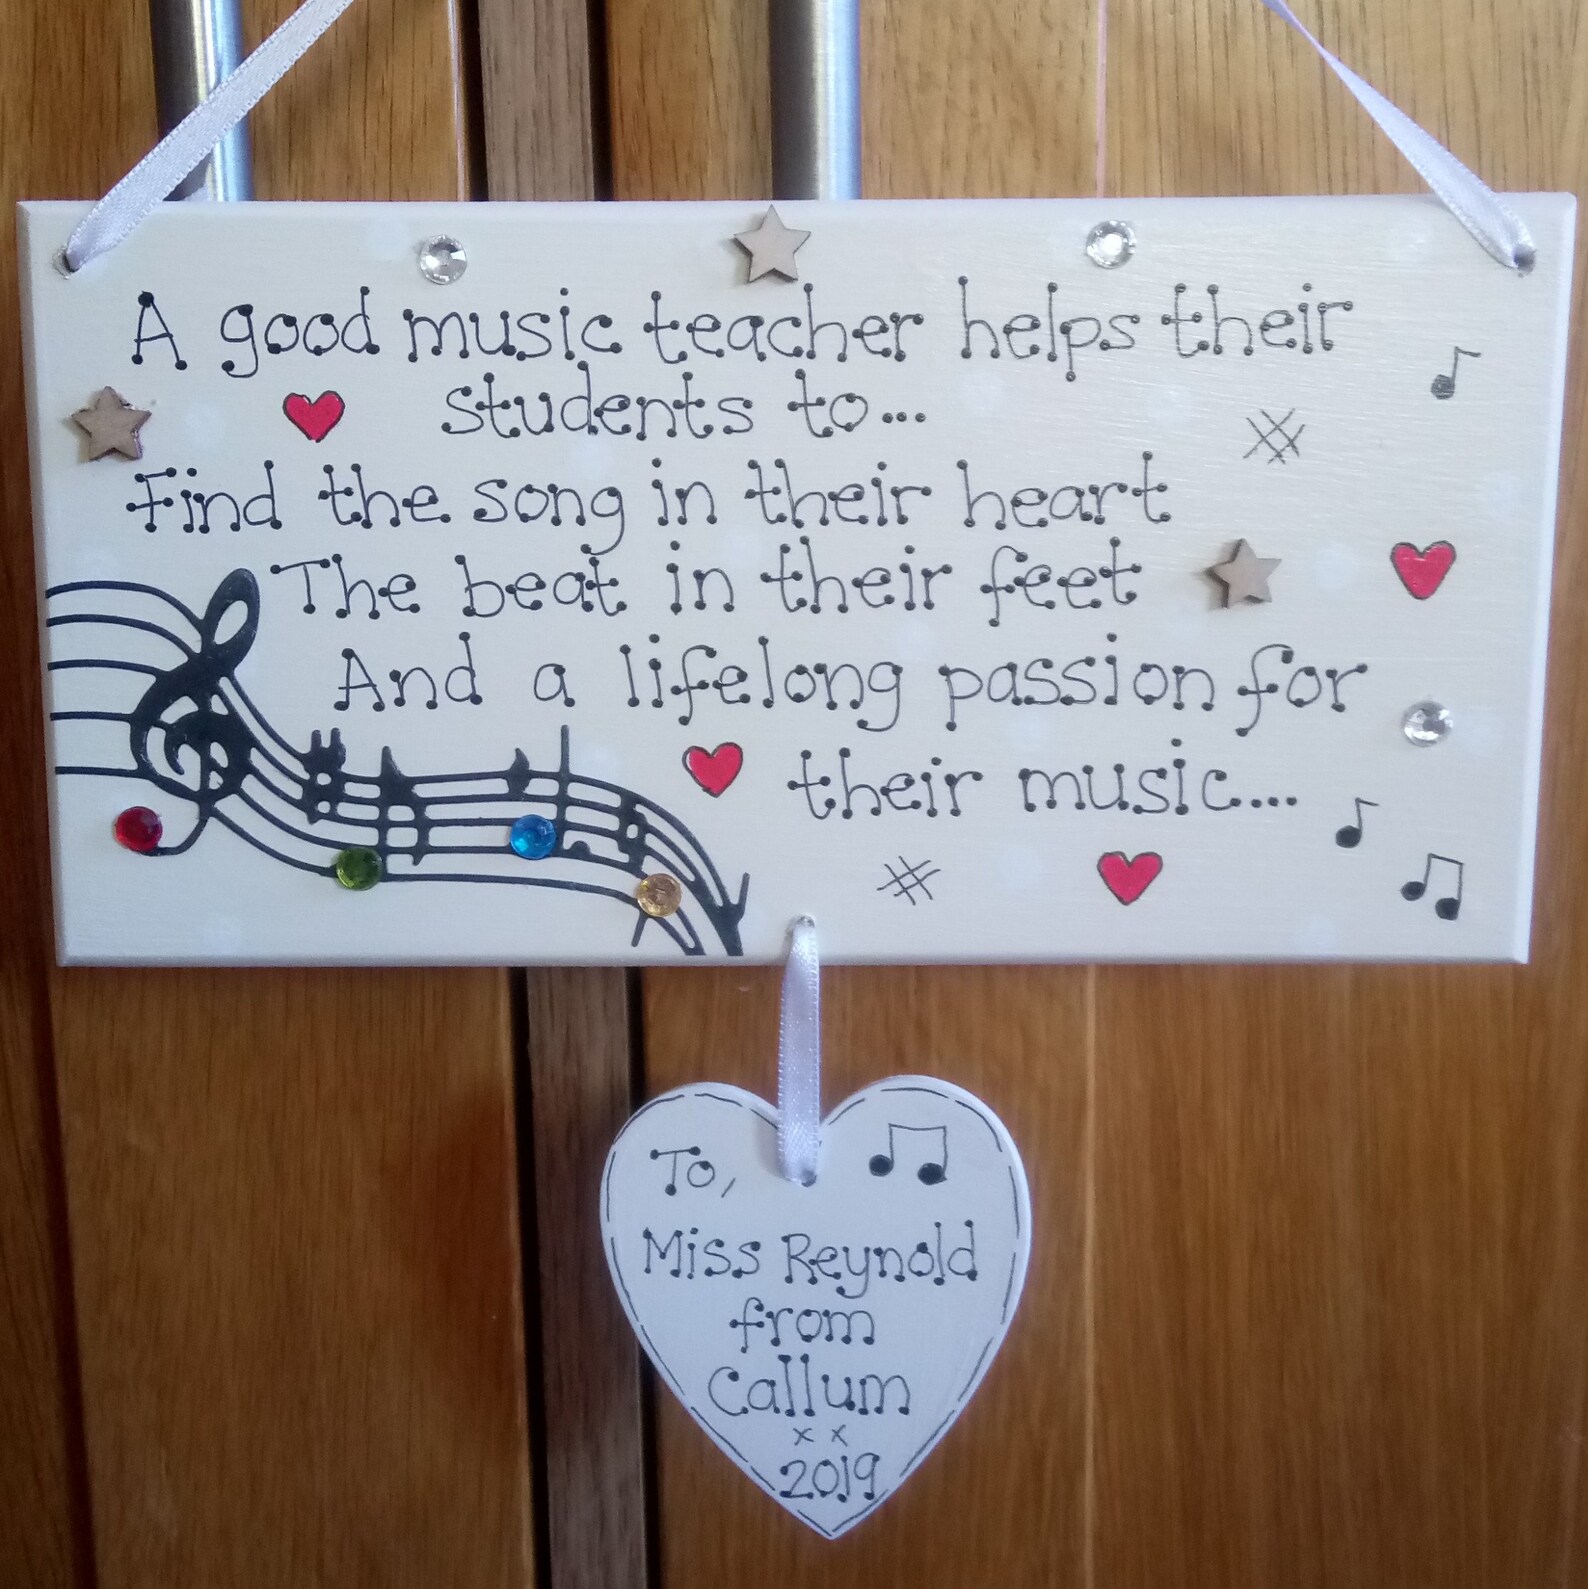 A good music teacher helps their
students to...
Find the song in their heart
The beat in their feet
And a lifelong passion for
their music...
To,
Miss Reynold
from
Callum
x x
2019